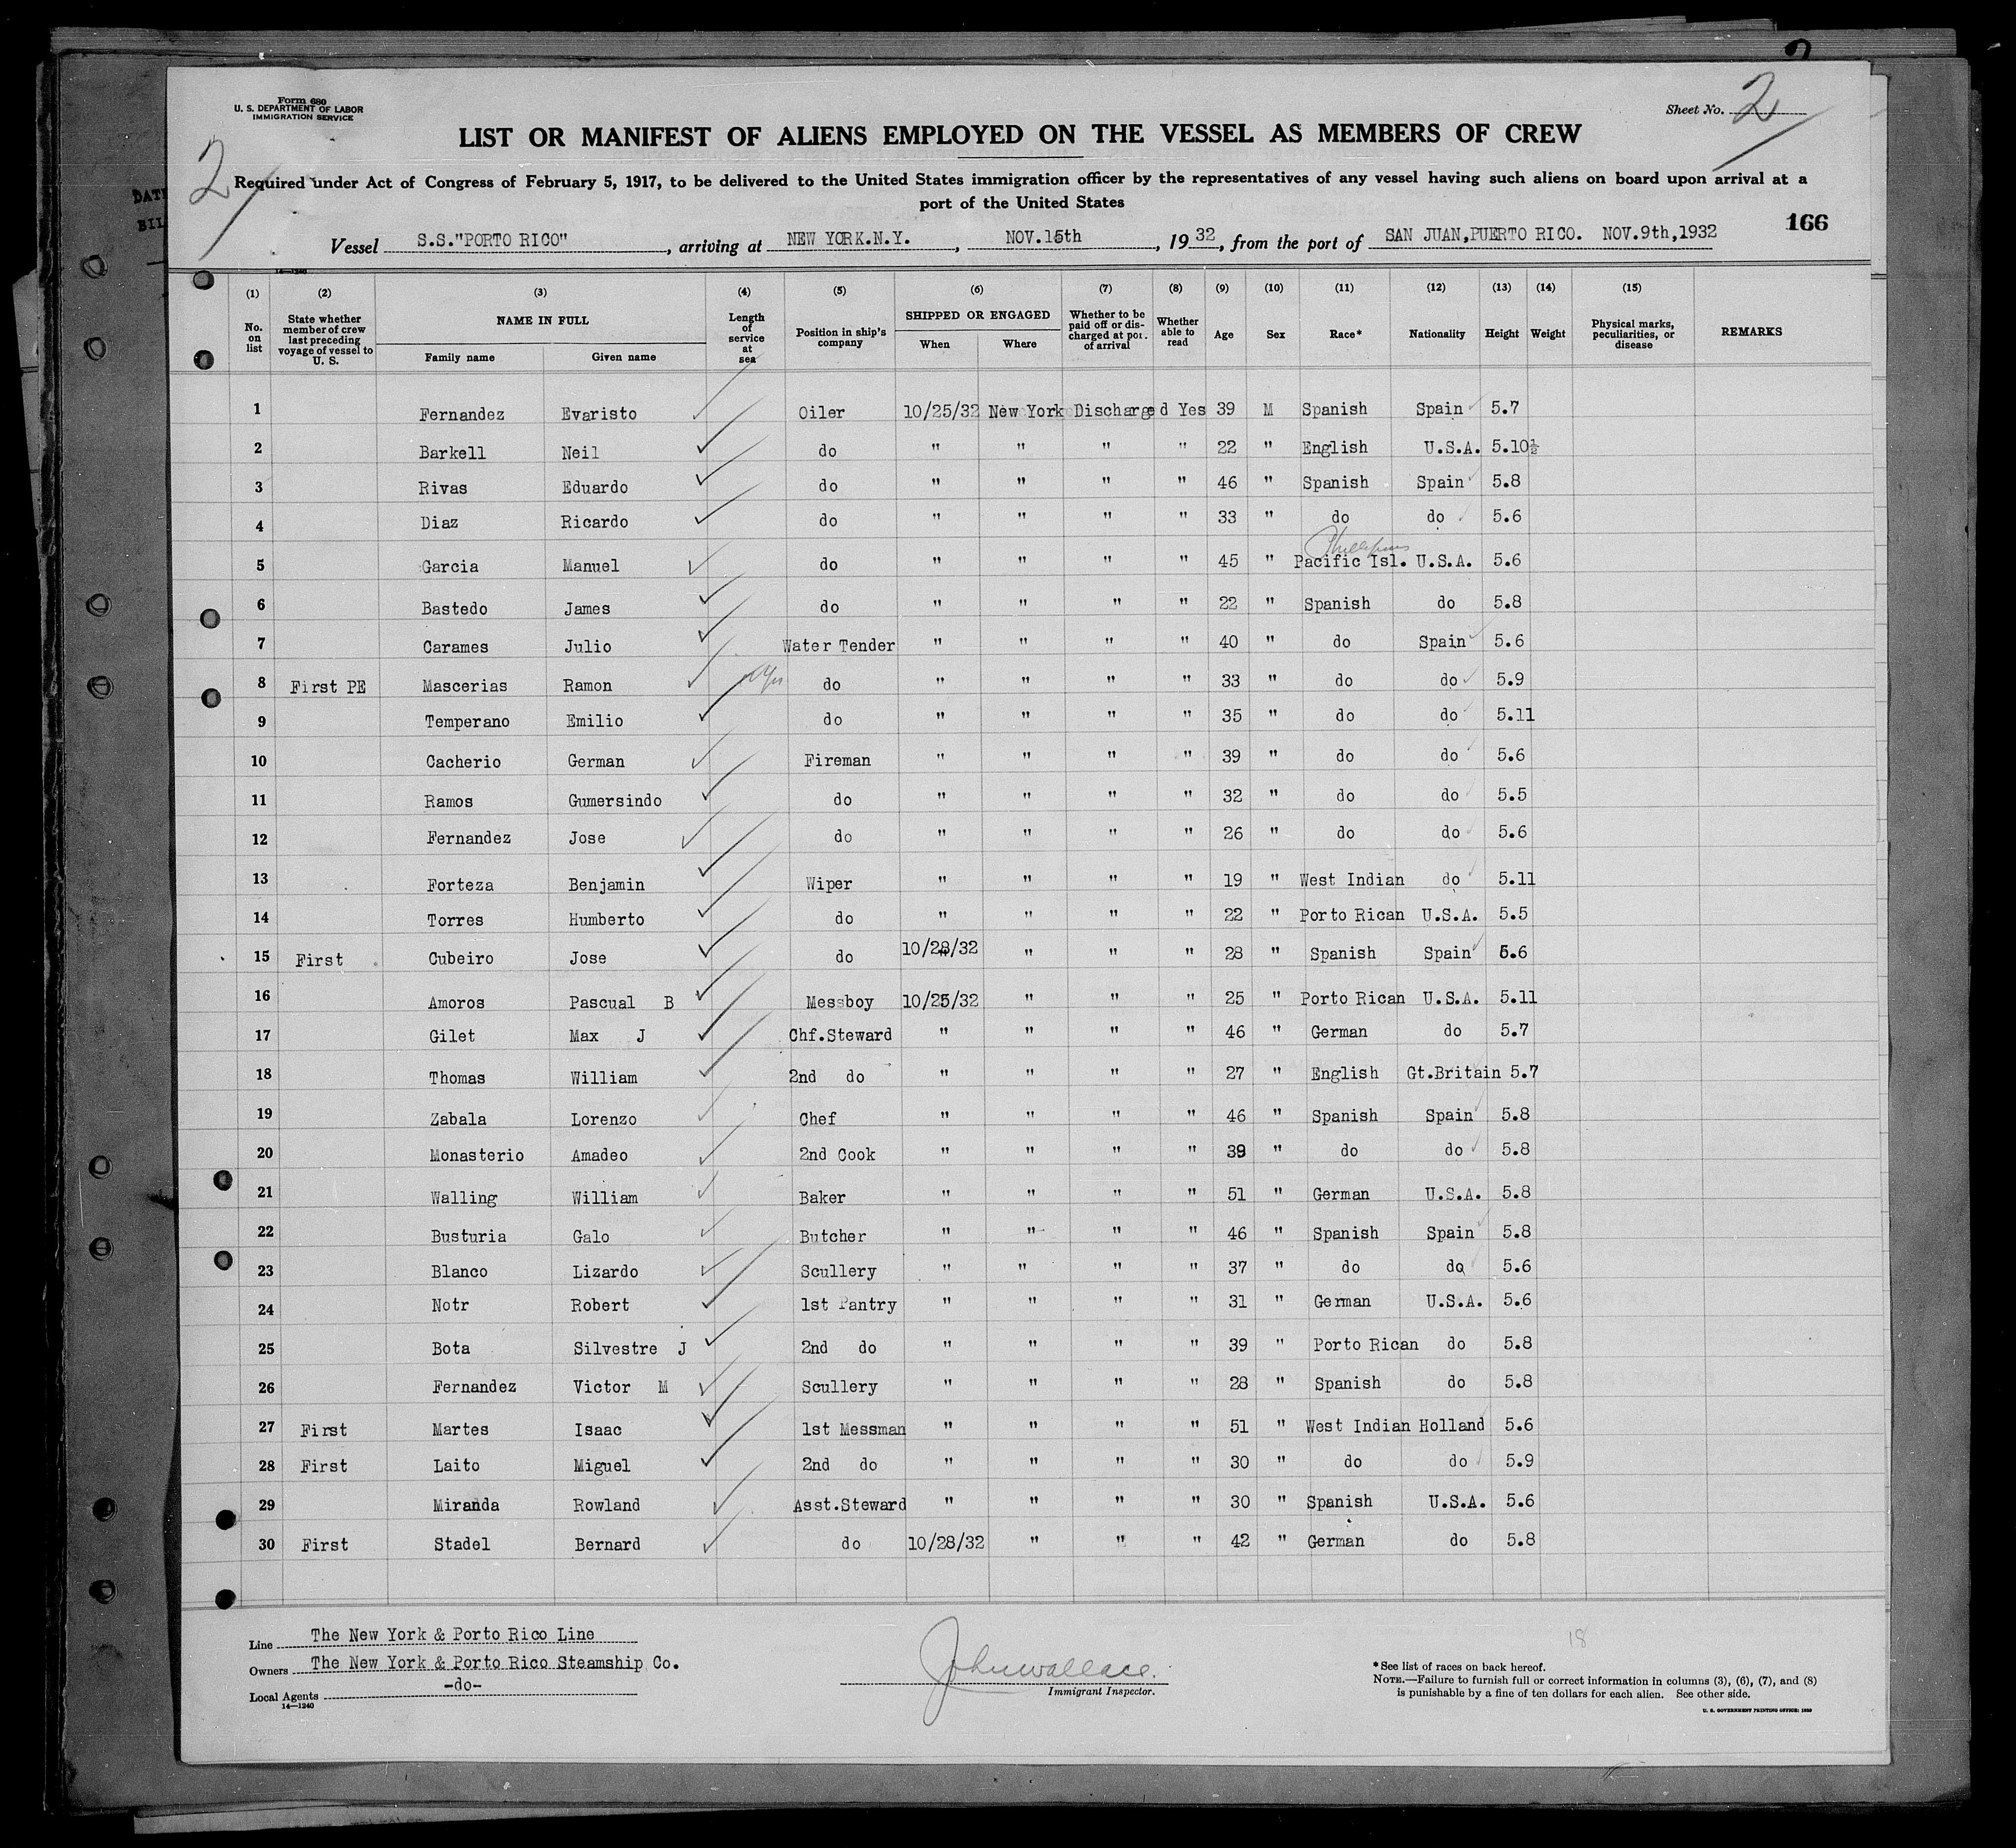 Form 680
U. S. DEPARTMENT OF LABOR
IMMIGRATION SERVICE
Sheet No. 2
2
LIST OR MANIFEST OF ALIENS EMPLOYED ON THE VESSEL AS MEMBERS OF CREW
Required under Act of Congress of February 5, 1917, to be delivered to the United States immigration officer by the representatives of any vessel having such aliens on board upon arrival at a
port of the United States
166
Vessel S.S."PORTO RICO", arriving at NEW YORK.N.Y., NOV.15th, 1932, from the port of SAN JUAN,PUERTO RICO. NOV.9th,1932
14—1240
(1) (2) (3) (4) (5) (6) (7) (8) (9) (10) (11) (12) (13) (14) (15)
No. on list State whether member of crew last preceding voyage of vessel to U. S. NAME IN FULL Family name Given name Length of service at sea Position in ship's company SHIPPED OR ENGAGED When Where Whether to be paid off or discharged at port of arrival Whether able to read Age Sex Race* Nationality Height Weight Physical marks, peculiarities, or disease REMARKS
1 Fernandez Evaristo Oiler 10/25/32 New York Discharged Yes 39 M Spanish Spain 5.7
2 Barkell Neil do " " " " 22 " English U.S.A. 5.10½
3 Rivas Eduardo do " " " " 46 " Spanish Spain 5.8
4 Diaz Ricardo do " " " " 33 " do do 5.6
5 Garcia Manuel do " " " " 45 " Pacific Isl. U.S.A. 5.6
6 Bastedo James do " " " " 22 " Spanish do 5.8
7 Carames Julio Water Tender " " " " 40 " do Spain 5.6
8 First PE Mascerias Ramon do " " " " 33 " do do 5.9
9 Temperano Emilio do " " " " 35 " do do 5.11
10 Cacherio German Fireman " " " " 39 " do do 5.6
11 Ramos Gumersindo do " " " " 32 " do do 5.5
12 Fernandez Jose do " " " " 26 " do do 5.6
13 Forteza Benjamin Wiper " " " " 19 " West Indian do 5.11
14 Torres Humberto do " " " " 22 " Porto Rican U.S.A. 5.5
15 First Cubeiro Jose do 10/28/32 " " " 28 " Spanish Spain 5.6
16 Amoros Pascual B Messboy 10/25/32 " " " 25 " Porto Rican U.S.A. 5.11
17 Gilet Max J Chf.Steward " " " " 46 " German do 5.7
18 Thomas William 2nd do " " " " 27 " English Gt.Britain 5.7
19 Zabala Lorenzo Chef " " " " 46 " Spanish Spain 5.8
20 Monasterio Amadeo 2nd Cook " " " " 39 " do do 5.8
21 Walling William Baker " " " " 51 " German U.S.A. 5.8
22 Busturia Galo Butcher " " " " 46 " Spanish Spain 5.8
23 Blanco Lizardo Scullery " " " " 37 " do do 5.6
24 Notr Robert 1st Pantry " " " " 31 " German U.S.A. 5.6
25 Bota Silvestre J 2nd do " " " " 39 " Porto Rican do 5.8
26 Fernandez Victor M Scullery " " " " 28 " Spanish do 5.8
27 First Martes Isaac 1st Messman " " " " 51 " West Indian Holland 5.6
28 First Laito Miguel 2nd do " " " " 30 " do do 5.9
29 Miranda Rowland Asst.Steward " " " " 30 " Spanish U.S.A. 5.6
30 First Stadel Bernard do 10/28/32 " " " 42 " German do 5.8
Line The New York & Porto Rico Line
Owners The New York & Porto Rico Steamship Co.
Local Agents -do-
14—1240
John Wallace.
Immigrant Inspector.
18
*See list of races on back hereof.
NOTE.—Failure to furnish full or correct information in columns (3), (6), (7), and (8)
is punishable by a fine of ten dollars for each alien. See other side.